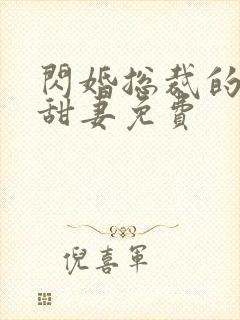 閃婚总裁的
甜妻免費
倪喜軍